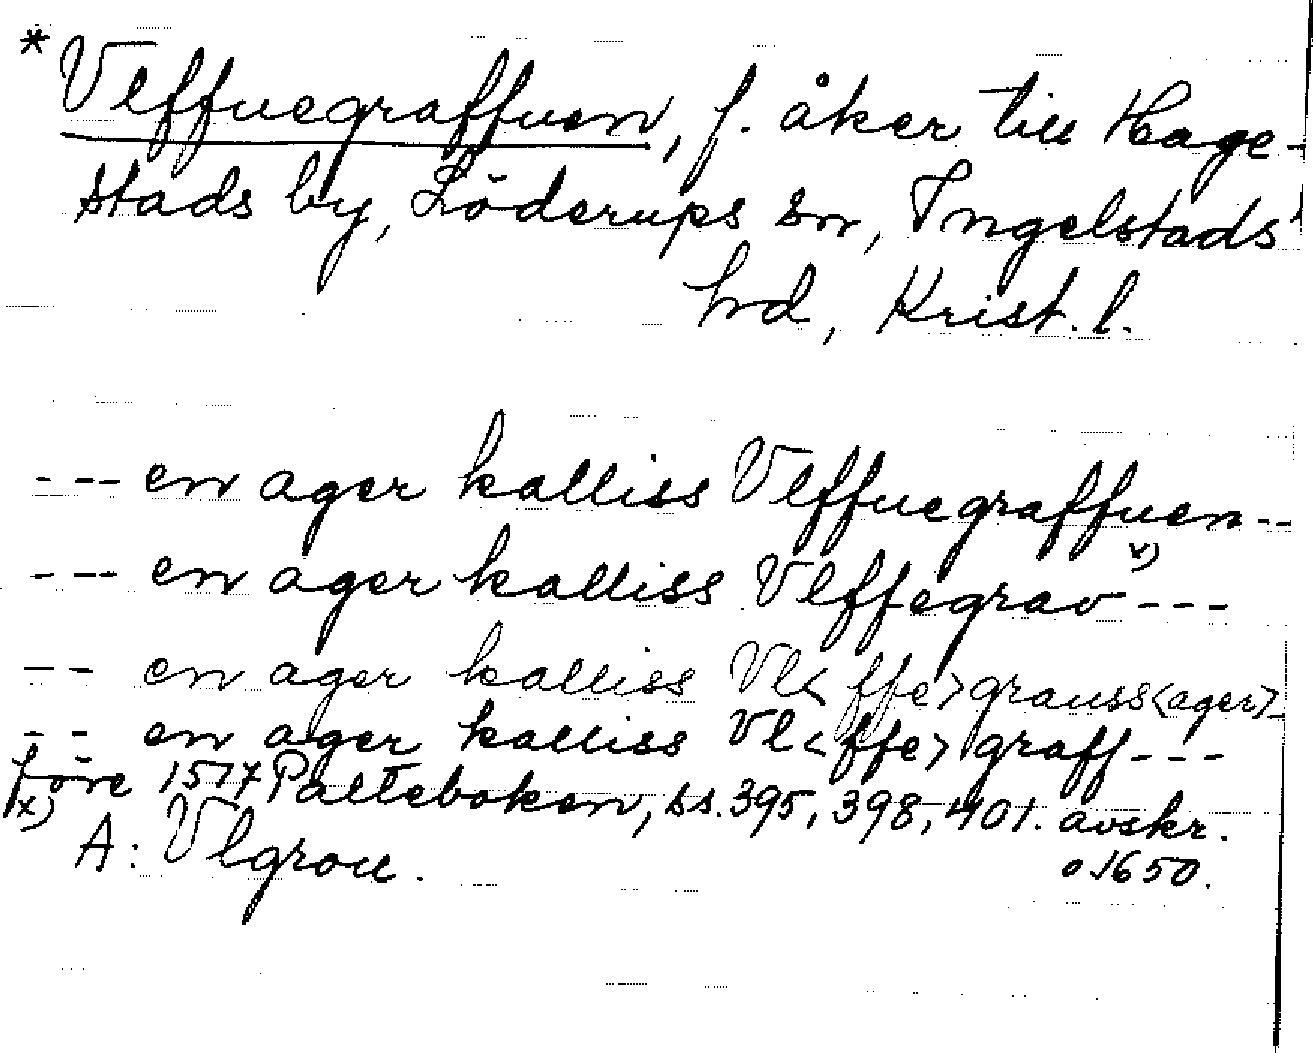 *Vlffuegraffuen, f. åker till Hage-
stads by, Löderups sn, Ingelstads
hd, Krist. l.
--- en ager kalliss Vlffuegraffuen--
--- en ager kalliss Vlffegrav x) ---
-- en ager kalliss Vl<ffe>grauss<ager>-
-- en ager kalliss Vl<ffe>graff---
före 1517 Palteboken, ss. 395, 398, 401. avskr.
o 1650.
x) A: Vlgrou.